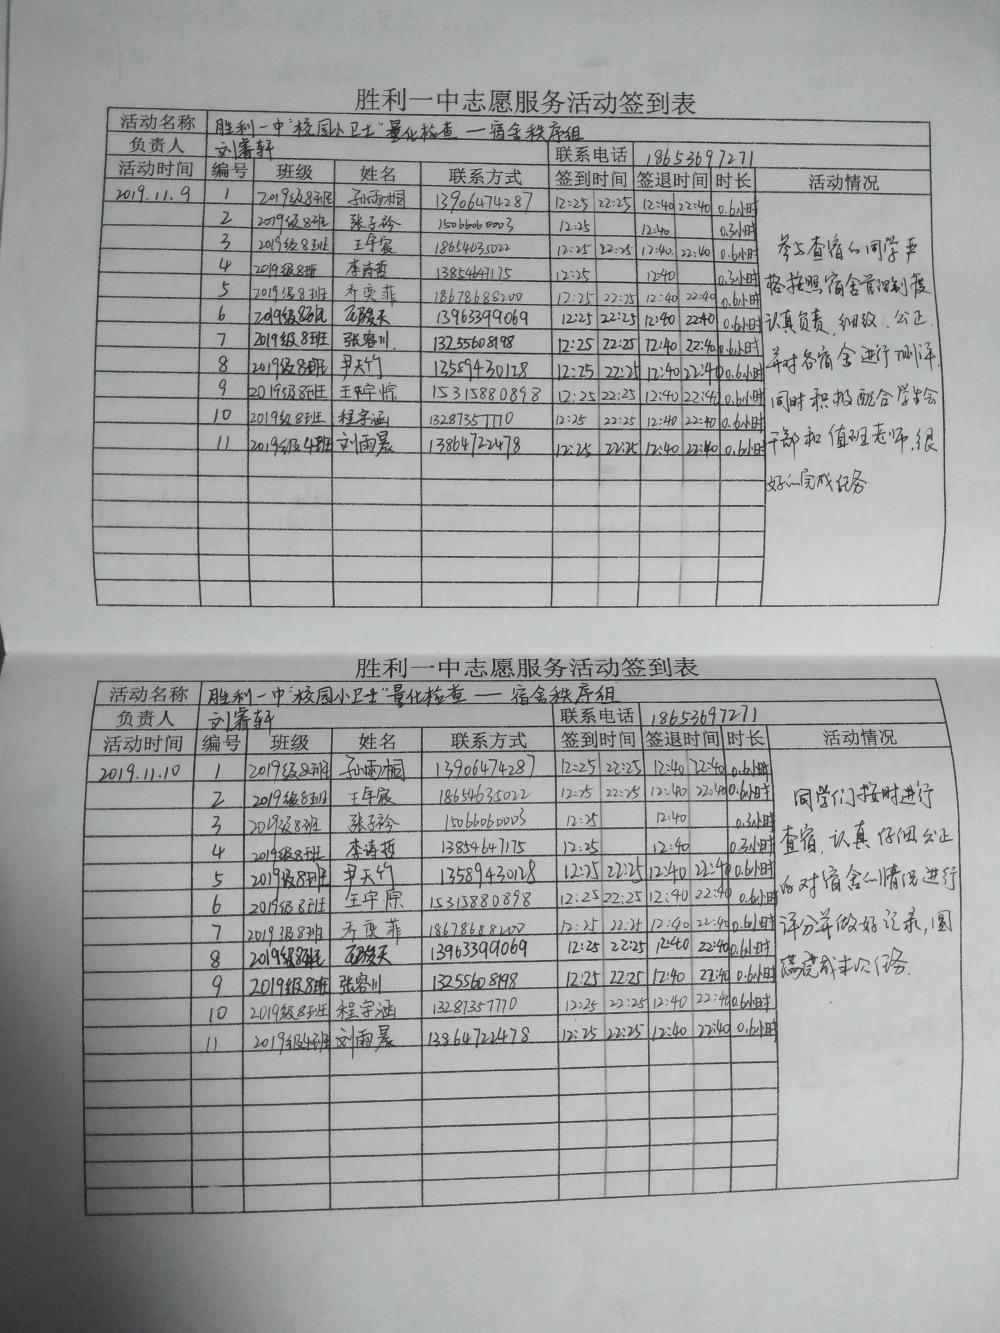 胜利一中志愿服务活动签到表
活动名称 胜利一中"校园小卫士"量化检查—宿舍秩序组
负责人 刘睿轩 联系电话 18653697271
活动时间 编号 班级 姓名 联系方式 签到时间 签退时间 时长 活动情况
2019.11.9 1 2019级8班 孙雨桐 13906474287 12:25 22:25 12:40 22:40 0.6小时
2 2019级8班 张子衿 15066060003 12:25 12:40 0.3小时
3 2019级8班 王年宸 18654635022 12:25 22:25 12:40 22:40 0.6小时
4 2019级8班 李诗哲 1385464175 12:25 12:40 0.3小时
5 2019级8班 乔奕菲 18678688200 12:25 22:25 12:40 22:40 0.6小时
6 2019级8班 13963399069 12:25 22:25 12:40 22:40 0.6小时
7 2019级8班 张容川 13255608198 12:25 22:25 12:40 22:40 0.6小时
8 2019级8班 尹天竹 13589430128 12:25 22:25 12:40 22:40 0.6小时
9 2019级8班 王宇惊 15315880898 12:25 22:25 12:40 22:40 0.6小时
10 2019级8班 程宇涵 13287357770 12:25 22:25 12:40 22:40 0.6小时
11 2019级4班 刘雨晨 13864722478 12:25 22:25 12:40 22:40 0.6小时
参与查宿的同学严
格按照宿舍管理制度
认真负责,细致、公正
并对各宿舍进行测评
同时积极配合学生会
干部和值班老师,很
好的完成任务
胜利一中志愿服务活动签到表
活动名称 胜利一中"校园小卫士"量化检查—宿舍秩序组
负责人 刘睿轩 联系电话 18653697271
活动时间 编号 班级 姓名 联系方式 签到时间 签退时间 时长 活动情况
2019.11.10 1 2019级8班 孙雨桐 13906474287 12:25 22:25 12:40 22:40 0.6小时
2 2019级8班 王年宸 18654635022 12:25 22:25 12:40 22:40 0.6小时
3 2019级8班 张子衿 15066060003 12:25 12:40 0.3小时
4 2019级8班 李诗哲 13854647175 12:25 12:40 0.3小时
5 2019级8班 尹天竹 13589430128 12:25 22:25 12:40 22:40 0.6小时
6 2019级8班 王宇惊 15315880898 12:25 22:25 12:40 22:40 0.6小时
7 2019级8班 乔奕菲 18678688200 12:25 22:25 12:40 22:40 0.6小时
8 2019级8班 13963399069 12:25 22:25 12:40 22:40 0.6小时
9 2019级8班 张容川 13255608198 12:25 22:25 12:40 22:40 0.6小时
10 2019级8班 程宇涵 13287357770 12:25 22:25 12:40 22:40 0.6小时
11 2019级4班 刘雨晨 13864722478 12:25 22:25 12:40 22:40 0.6小时
同学们按时进行
查宿,认真仔细公正
的对宿舍的情况进行
评分并做好记录,圆
满完成本次任务.